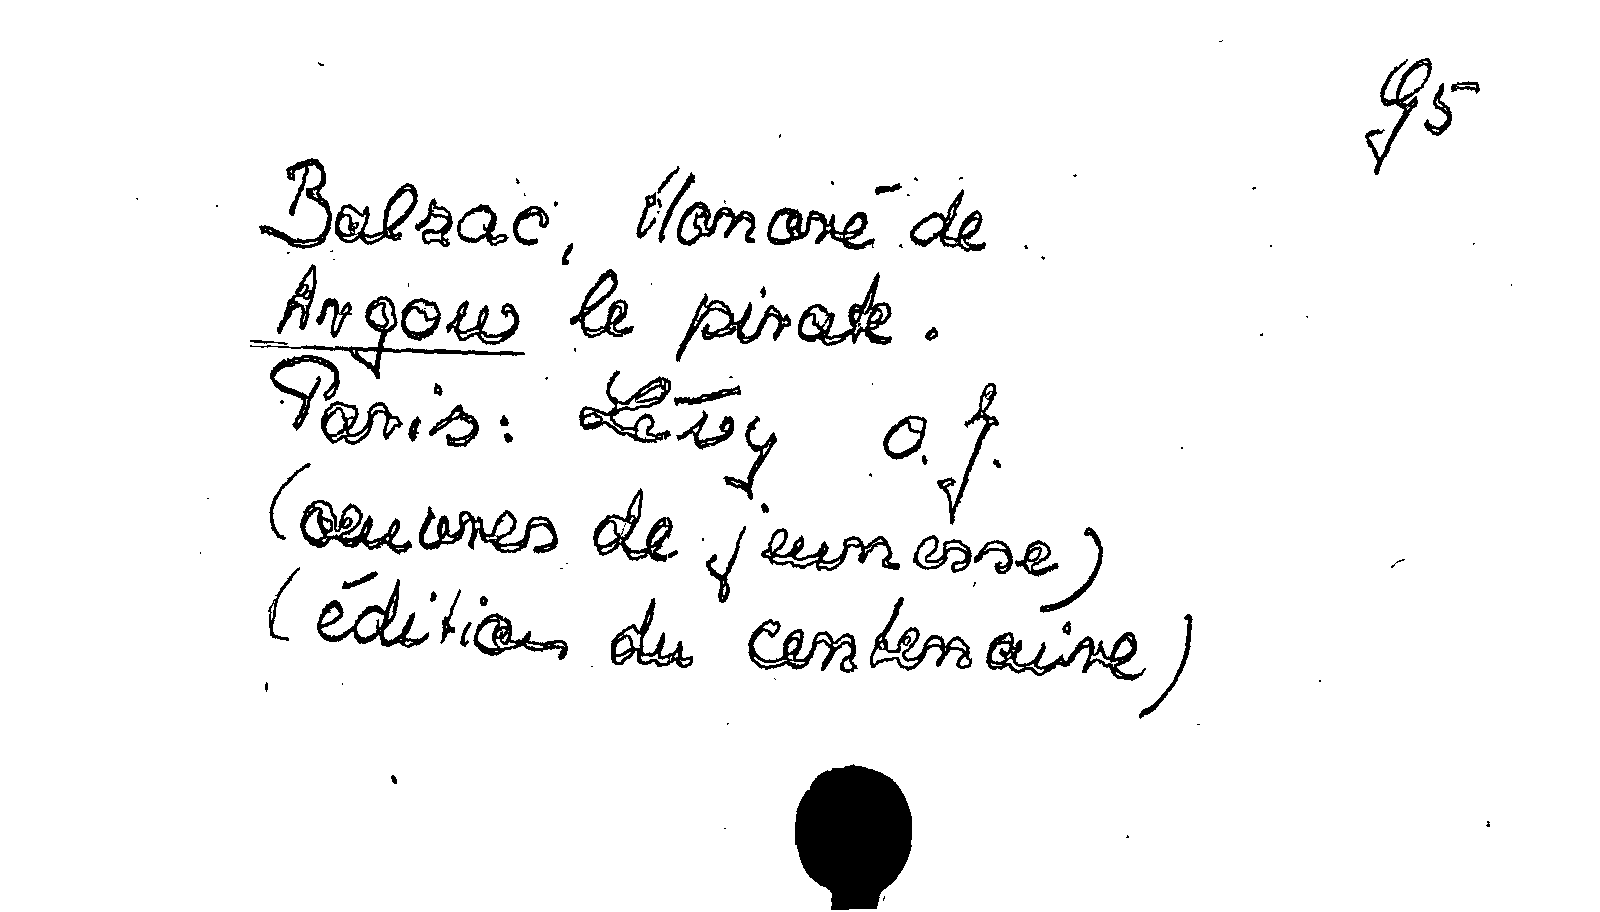 G5
Balzac, Honoré de
Angow le pirate.
Paris: Lévy o.J.
(oeuvres de jeunesse)
(édition du centenaire)